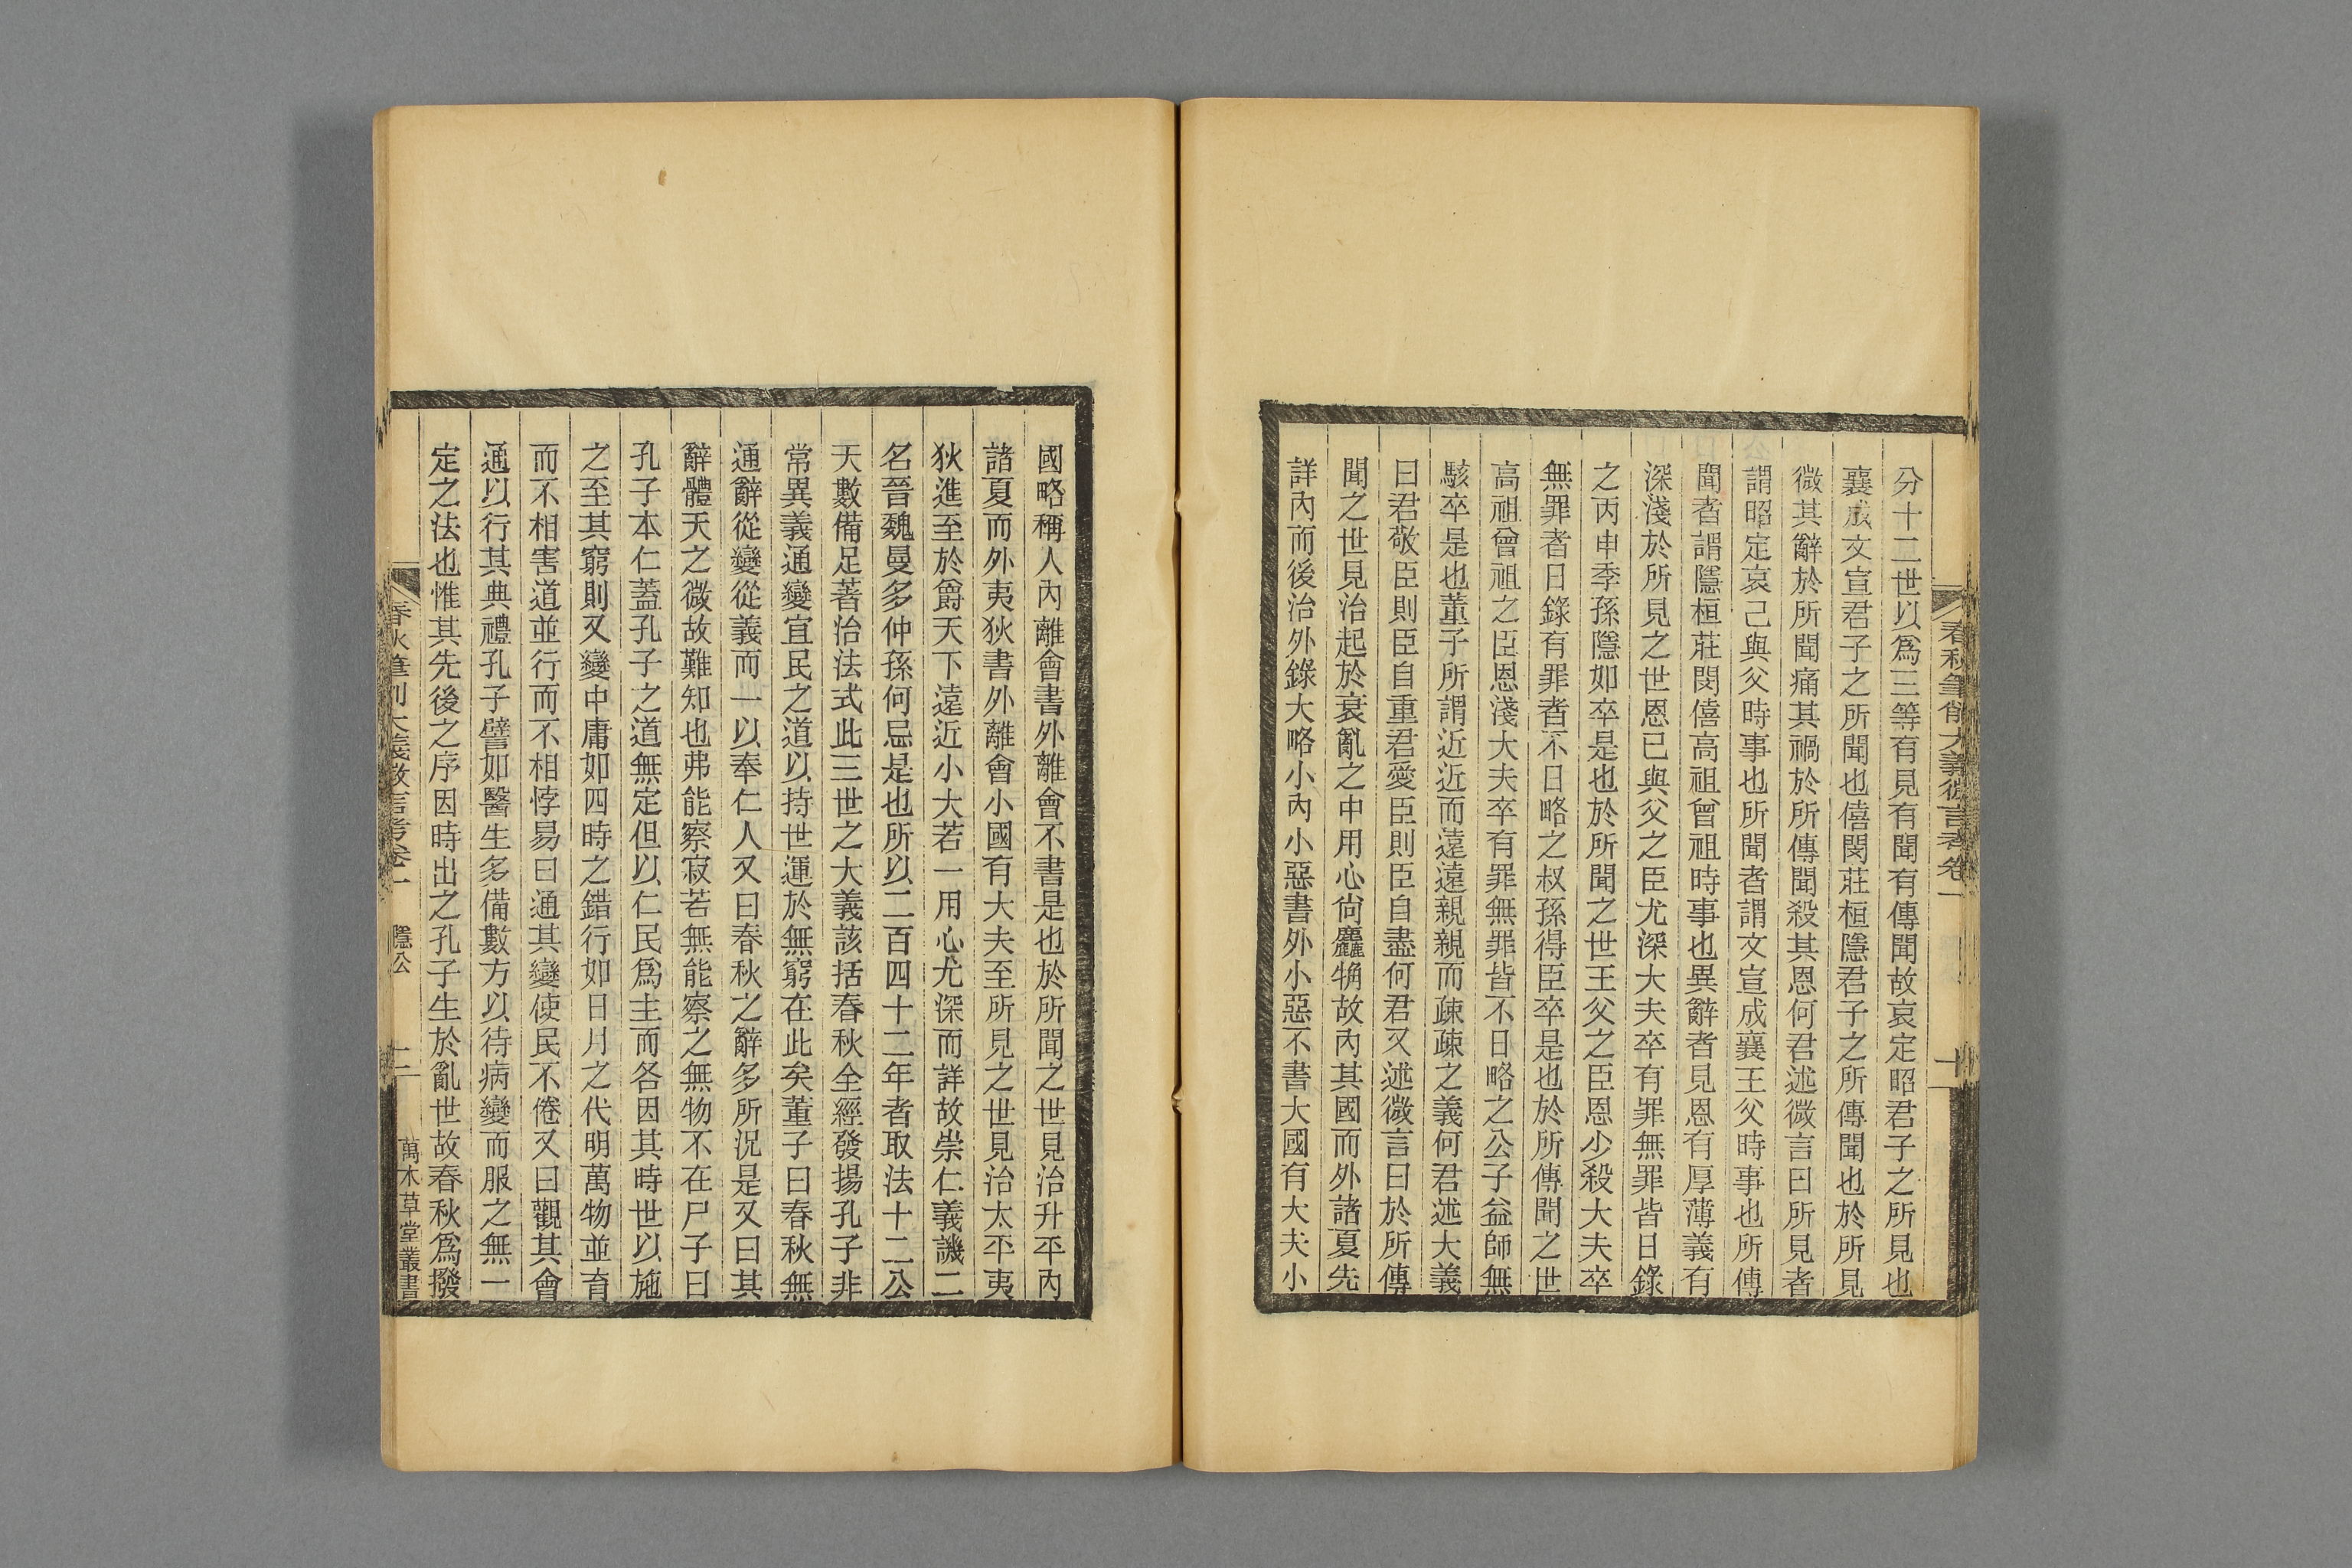 分十二世以爲三等有見有聞有傳聞故哀定昭君子之所見也
襄成文宣君子之所聞也僖閔莊桓隱君子之所傳聞也於所見
微其辭於所聞痛其禍於所傳聞殺其恩何君述微言曰所見者
謂昭定哀己與父時事也所聞者謂文宣成襄王父時事也所傳
聞者謂隱桓莊閔僖高祖曾祖時事也異辭者見恩有厚薄義有
深淺於所見之世恩已與父之臣尤深大夫卒有罪無罪皆日錄
之丙申季孫隱如卒是也於所聞之世王父之臣恩少殺大夫卒
無罪者日錄有罪者不日略之叔孫得臣卒是也於所傳聞之世
高祖曾祖之臣恩淺大夫卒有罪無罪皆不日略之公子益師無
駭卒是也董子所謂近近而遠遠親親而疎疎之義何君述大義
曰君敬臣則臣自重君愛臣則臣自盡何君又述微言曰於所傳
聞之世見治起於衰亂之中用心尙麤觕故內其國而外諸夏先
詳內而後治外錄大略小內小惡書外小惡不書大國有大夫小
春秋筆削大義微言考卷一
十一
國略稱人內離會書外離會不書是也於所聞之世見治升平內
諸夏而外夷狄書外離會小國有大夫至所見之世見治太平夷
狄進至於爵天下遠近小大若一用心尤深而詳故崇仁義譏二
名晉魏曼多仲孫何忌是也所以二百四十二年者取法十二公
天數備足著治法式此三世之大義該括春秋全經發揚孔子非
常異義通變宜民之道以持世運於無窮在此矣董子曰春秋無
通辭從變從義而一以奉仁人又曰春秋之辭多所況是又曰其
辭體天之微故難知也弗能察寂若無能察之無物不在尸子曰
孔子本仁蓋孔子之道無定但以仁民爲主而各因其時世以施
之至其窮則又變中庸如四時之錯行如日月之代明萬物並育
而不相害道並行而不相悖易曰通其變使民不倦又曰觀其會
通以行其典禮孔子譬如醫生多備數方以待病變而服之無一
定之法也惟其先後之序因時出之孔子生於亂世故春秋爲撥
春秋筆削大義微言考卷一
隱公
萬木草堂叢書